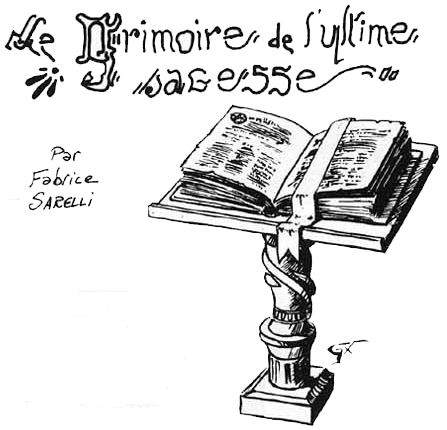 Le Grimoire de l'ultime
sagesse
Par
Fabrice
SARELLI
GX